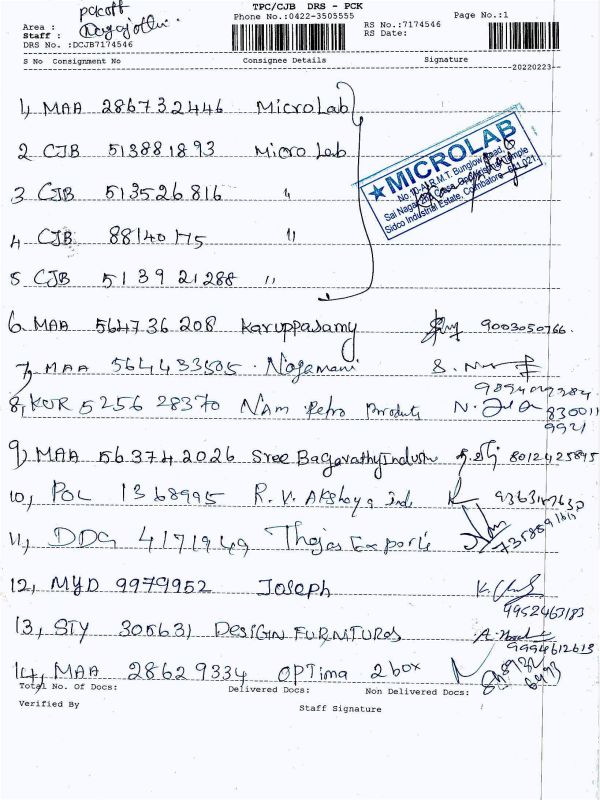 TPC/CJB DRS - PCK
Area : pckoff
Phone No.:0422-3505555
Page No.:1
Staff :
RS No.:7174546
RS Date:
DRS No. :DCJB7174546
S No Consignment No Consignee Details Signature
20220223
1, MAA 286732446 MicroLab
2 CJB 513881893 Micro Lab
3 CJB 513526816 "
4 CJB 88140175 "
5 CJB 513921288 "
MICROLAB
No.10-A, R.M.T. Bunglow Road,
Sai Nagar,
Sidco Industrial Estate, Coimbatore - 641 021
6. MAA 564736208 Karuppasamy 9003050766.
7, MAA 564433505 . Nagamani
8, KUR 5256 28370 NAM Petro Products 830011
9921
9) MAA 563742026 Sree Bagavathy Industri 8012425895
10, POL 1368995 R. V. Akshaya Ind
11, DDG 4171949 Thejas Exports
12, MYD 9979952 Joseph
9952463183
13, STY 305631 DESIGIN FURNITUROS
9994612613
14, MAA 28629334 OPTima 2 box
Total No. Of Docs: Delivered Docs: Non Delivered Docs:
Verified By Staff Signature